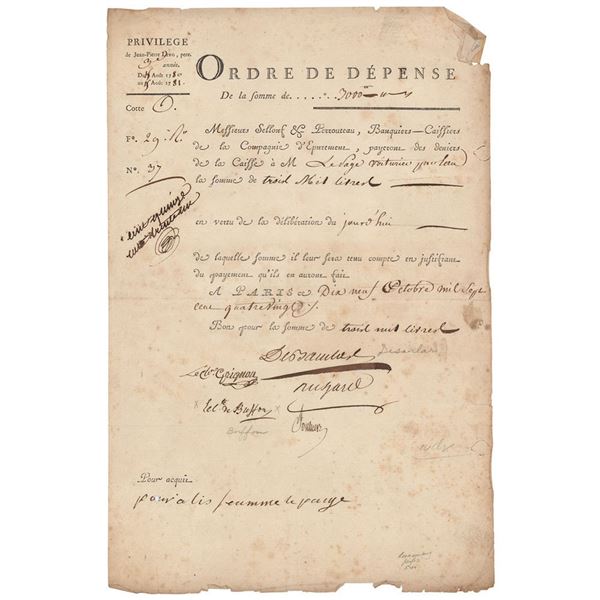 PRIVILEGE
de Jean-Pierre Dero, pere.
3e année.
Du 4 Août 1780
au 4 Août 1781.
ORDRE DE DÉPENSE
De la somme de...... 3000
Cotte
Fo. 29. Ro
No. 37
Messieurs Sellonf & Perrouteau, Banquiers-Caissiers
de la Compagnie d'Epurement, payeront des deniers
de la Caisse à M Le Page voiturier par Eau
la somme de trois Mil livres
en vertu de la délibération du jourd'hui
de laquelle somme il leur sera tenu compte en justifiant
du payement qu'ils en auront fait
A PARIS ce Dix neuf Octobre mil Sept
cent quatrevingt
Bon pour la somme de trois mil livres
Desanlard
Le Ch. Grignon
Le Cte de Buffon
Buffon
Pour acquit